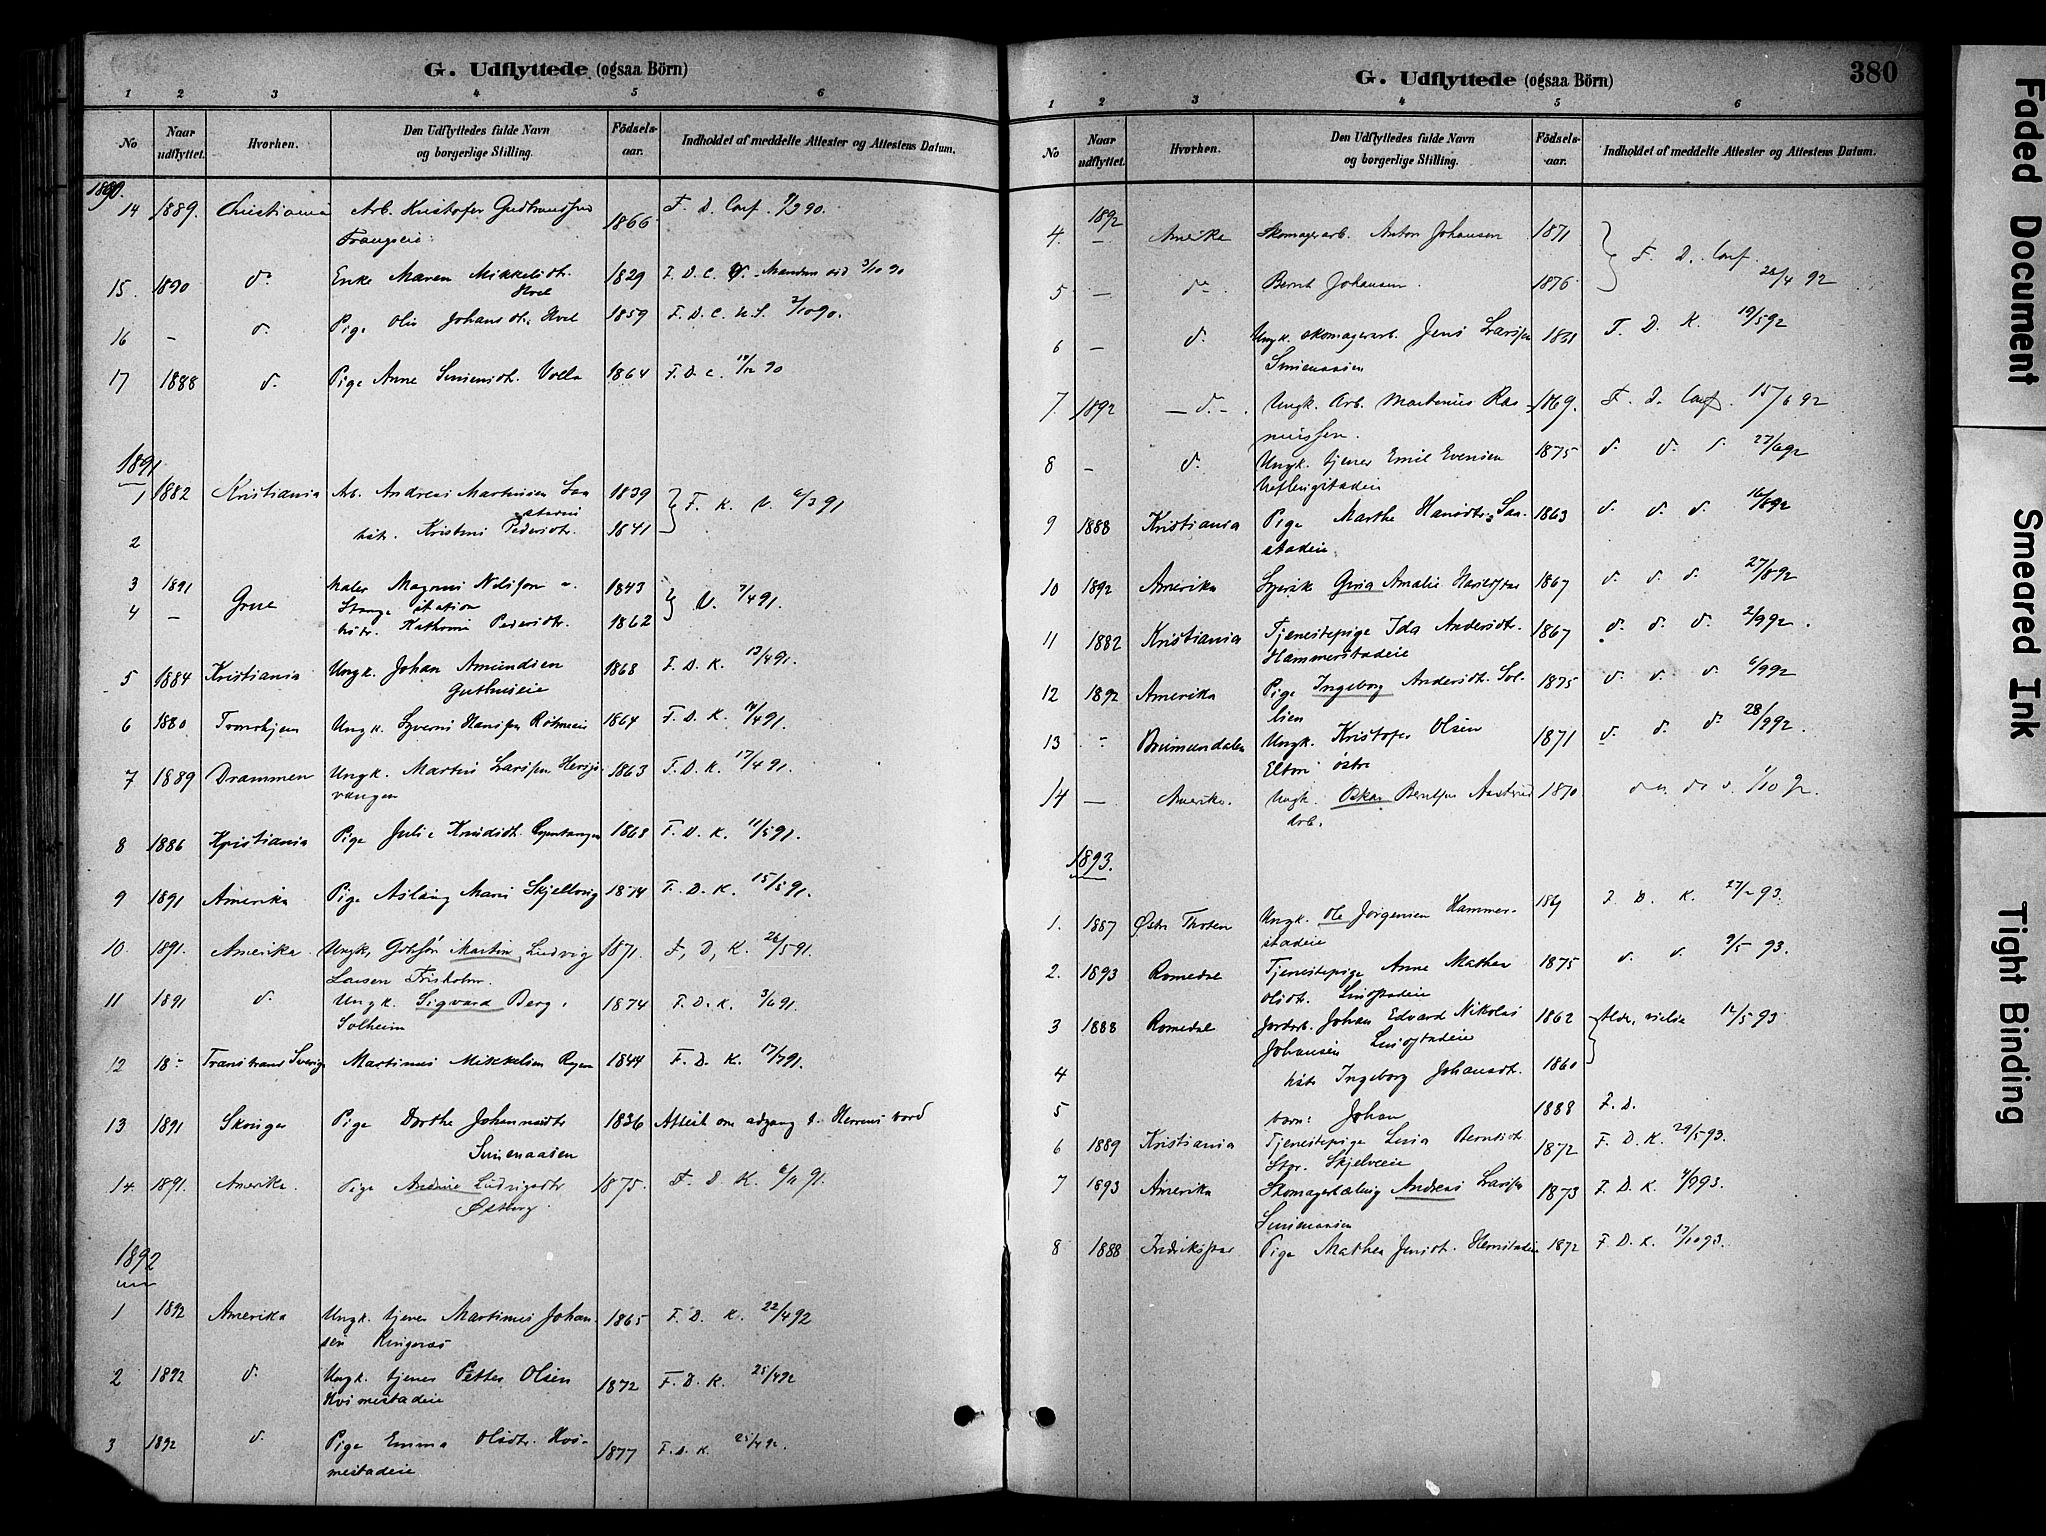 G. Udflyttede (ogsaa Börn)
1 2 3 4 5 6
No Naar udflyttet. Hvorhen. Den Udflyttedes fulde Navn og borgerlige Stilling. Födsels-aar. Indholdet af meddelte Attester og Attestens Datum.
1890.
14 1889. Christiania Arb. Kristofer Gudbrandsen 1866 F. D. Conf. 9/9 90.
15 1890 do Enke Maren Mikkelsdtr. 1829 F. D. C. 3/10 90
Hvel
16 - d. Pige Olis Johansdtr. Hvel 1859 F. D. C. 2/10 90.
17 1888 d. Pige Anne Simensdtr. Volla 1864 F. D. C. 90
1891
1 1882 Kristiania Arb. Andreas Martinsen 1839 F. K. V. 6/3 91
2 hstr. Kristine Pedersdtr. 1841
3 1891 Grue Maler Magnus Nilsson 1843 V. 7/4 91.
Stange station
4 - hstr. Kathrine Pedersdtr. 1862
5 1884 Kristiania Ungk. Johan Amundsen 1868 F. D. K. 13/4 91.
6 1880 Tronhjem Ungk. Syvern Hansen 1864 F. D. K. 14/4 91.
7 1889 Drammen Ungk. Martin Larsen 1863 F. D. K. 17/4 91.
vangen
8 1886 Kristiania Pige Julie Knudsdtr. 1868 F. D. K. 11/5 91.
9 1891 Amerika Pige Aslaug Marie Skjelbreig 1874 F. D. K. 15/5 91.
10. 1891. Amerika. Ungk. Martin Ludvig 1871. F, D, K. 26/5 91.
Larsen Frisholm.
11 1891 d. Ungk. Sigvard Berg. 1874 F. D. K. 3/6 91.
Solheim
12 18- Transtrand Sverige Martinus Mikkelsen 1844 F. D. K. 17/7 91.
13 1891 Skonger Pige Dorthe Johannesdtr 1836 Attest om adgang t. Herrens bord
Simenaasen
14. 1891. Amerika. Pige Andrine Ludvigsdtr 1875. F. D K. 91.
Østberg.
1892
1 1892 Amerika Ungk. tjener Martinus Johan- 1865 F. D. K. 22/4 92
sen Ringeraas
2 1892 d. Ungk. tjener Petter Olsen 1872 F. D. K. 25/4 92
3 1892 d. Pige Emma Olsdtr. 1877 F. D. K. 25/4 92.
G. Udflyttede (ogsaa Börn)
380
1 2 3 4 5 6
No Naar udflyttet. Hvorhen. Den Udflyttedes fulde Navn og borgerlige Stilling. Födsels-aar. Indholdet af meddelte Attester og Attestens Datum.
1892
4 - Amerika Skomagerarb. Anton Johansen 1871 F. D. Conf.
5 - do Bernt Johansen. 1876 28/4 92
6 - d. Ungk. skomagerarb. Jens Larsen F. D. K. 19/5 92
Simenaasen
7. 1892 -d.- Ungk. Arb. Martinius Ras- 1869. F. D. Conf 15/6 92
mussen.
8 - d. Ungk. tjener Emil Evensen 1875 d. d. d 27/6 92
9 1888 Kristiania Pige Marthe Hansdtr. Saa- 1863 d. d. d 16/8 92
stadeie.
10 1892 Amerika Amalie 1867 d. d. d. 27/8 92
11 1882 Kristiania Tjenestepige Ida Andersdtr. 1867 d. d. d. 2/9 92.
Hammerstadeie
12 1892 Amerika Pige Ingeborg Andersdtr. Sol- 1875 d. d. d. 6/9 92
lien
13 - Brumundalen Ungk. Kristofer Olsen 1871 d. d. d. 28/9 92.
Elton østre
14 - Amerika. Ungk. Oskar Berntsen 1870 1/10 92.
Arb.
1893.
1. 1887 Østre Thoten Ungk. Ole Jørgensen Hammer- 1869 F. D. K. 93.
stadeie
2. 1893 Romedal Tjenestepige Anne Mathea 1875 d. d. 9/5 93.
3 1888 Romedal Jordarb. Johan Edvard Nikolai 1862 Alder, vielse 12/5 93.
Johansen
4 hstr Ingeborg Johansdtr. 1860
5 barn: Johan 1888 F. D.
6 1889 Kristiania Tjenestepige Lina Berntsdtr 1872 F. D. K. 29/5 93.
Stor. Skjelveie
7 1893 Amerika Skomagerlærling Andreas Larsen 1873 F. D. K. 4/9 93.
Simenaasen
8 1888 Fredrikstad Pige Mathea Jensdtr. 1872 F. D. K. 17/10 93.
Faded Document
Smeared Ink
Tight Binding